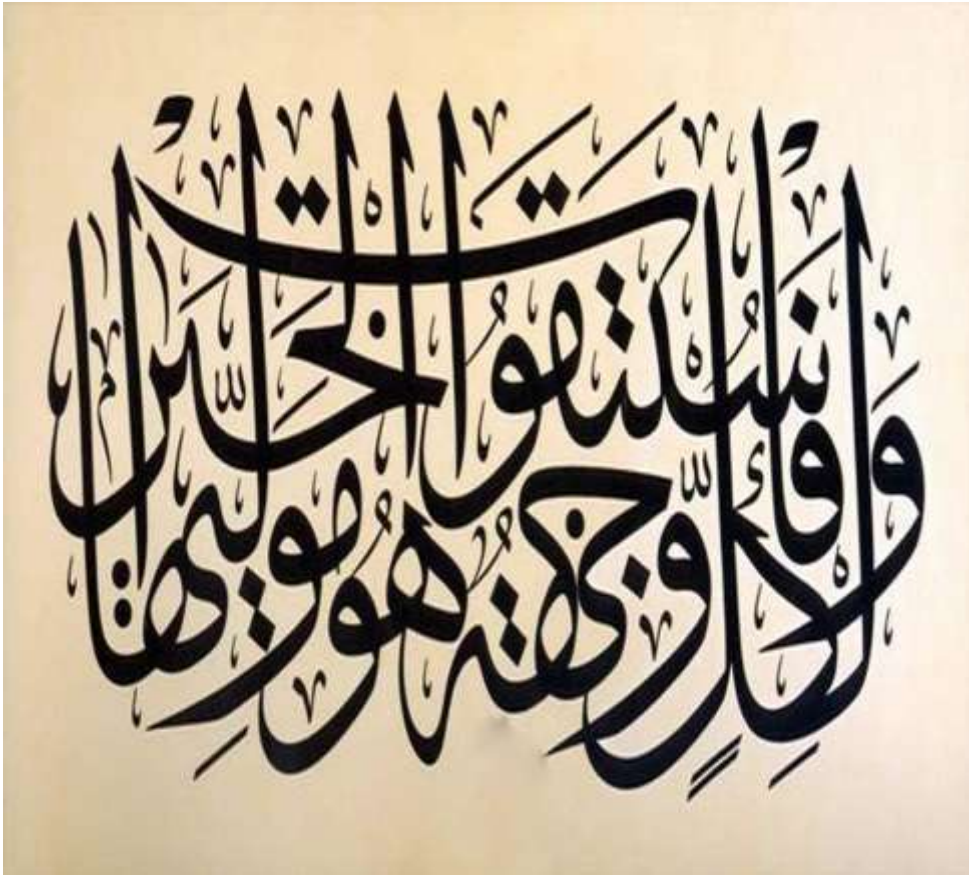 وَلِكُلٍّ وِّجْهَةٌ هُوَ مُوَلِّيهَا
فَاسْتَبِقُوا الْخَيْرَاتِ